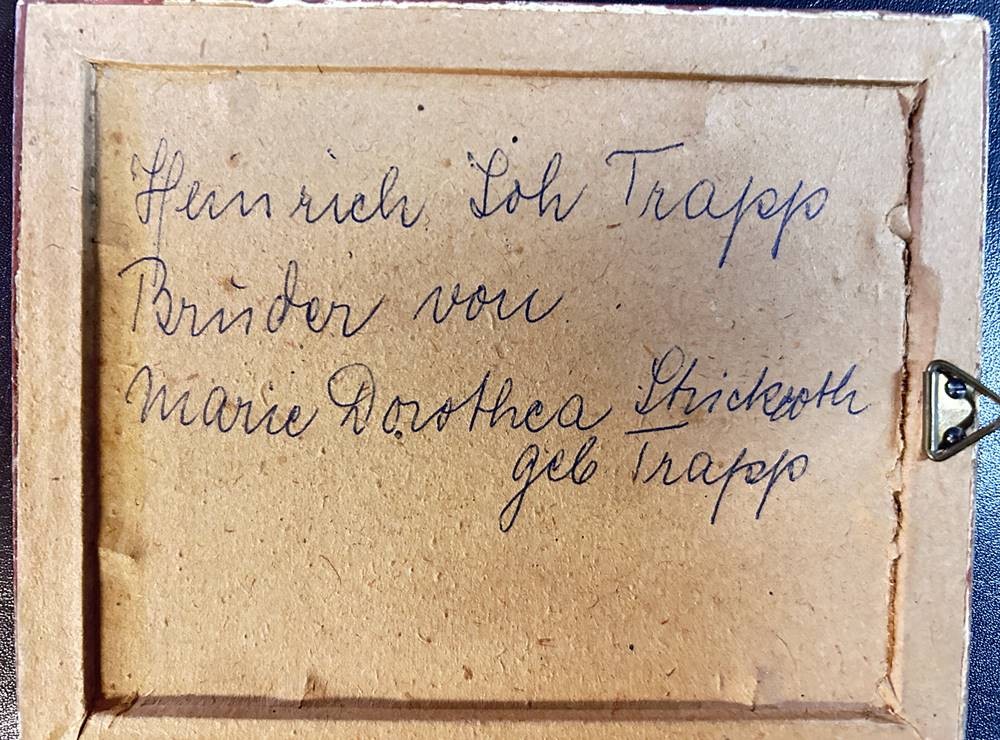 Heinrich Joh Trapp
Bruder von
Marie Dorothea Strickroth
geb Trapp